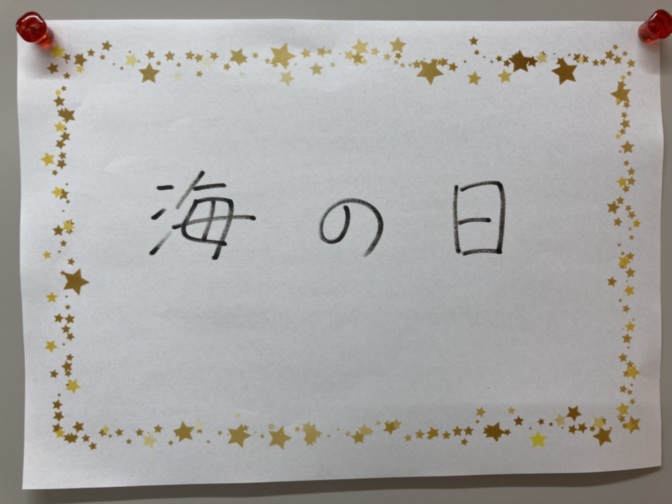 海の日